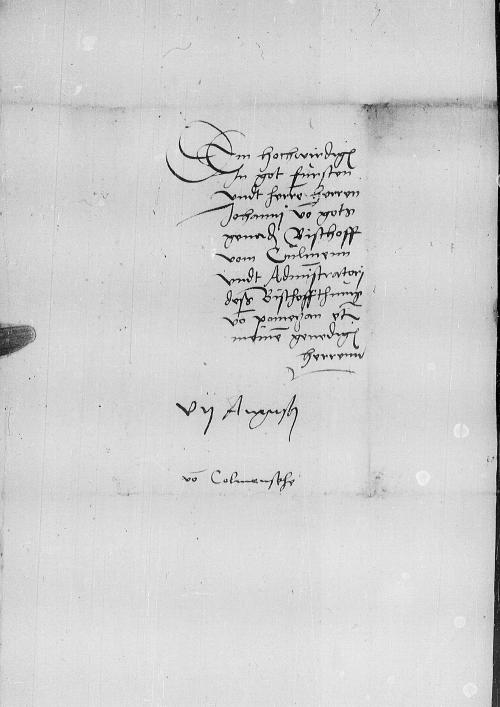 Dem Hochwirdig
In got fursten
vndt herre Herren
Johanni vo gots
genad Bisthoff
vom Culmenn
vndt Administratori
deß Bisthoffthumß
vo pomezan etc
meinē genedig
Herrenn
vij Augusti
vō Colmensehe